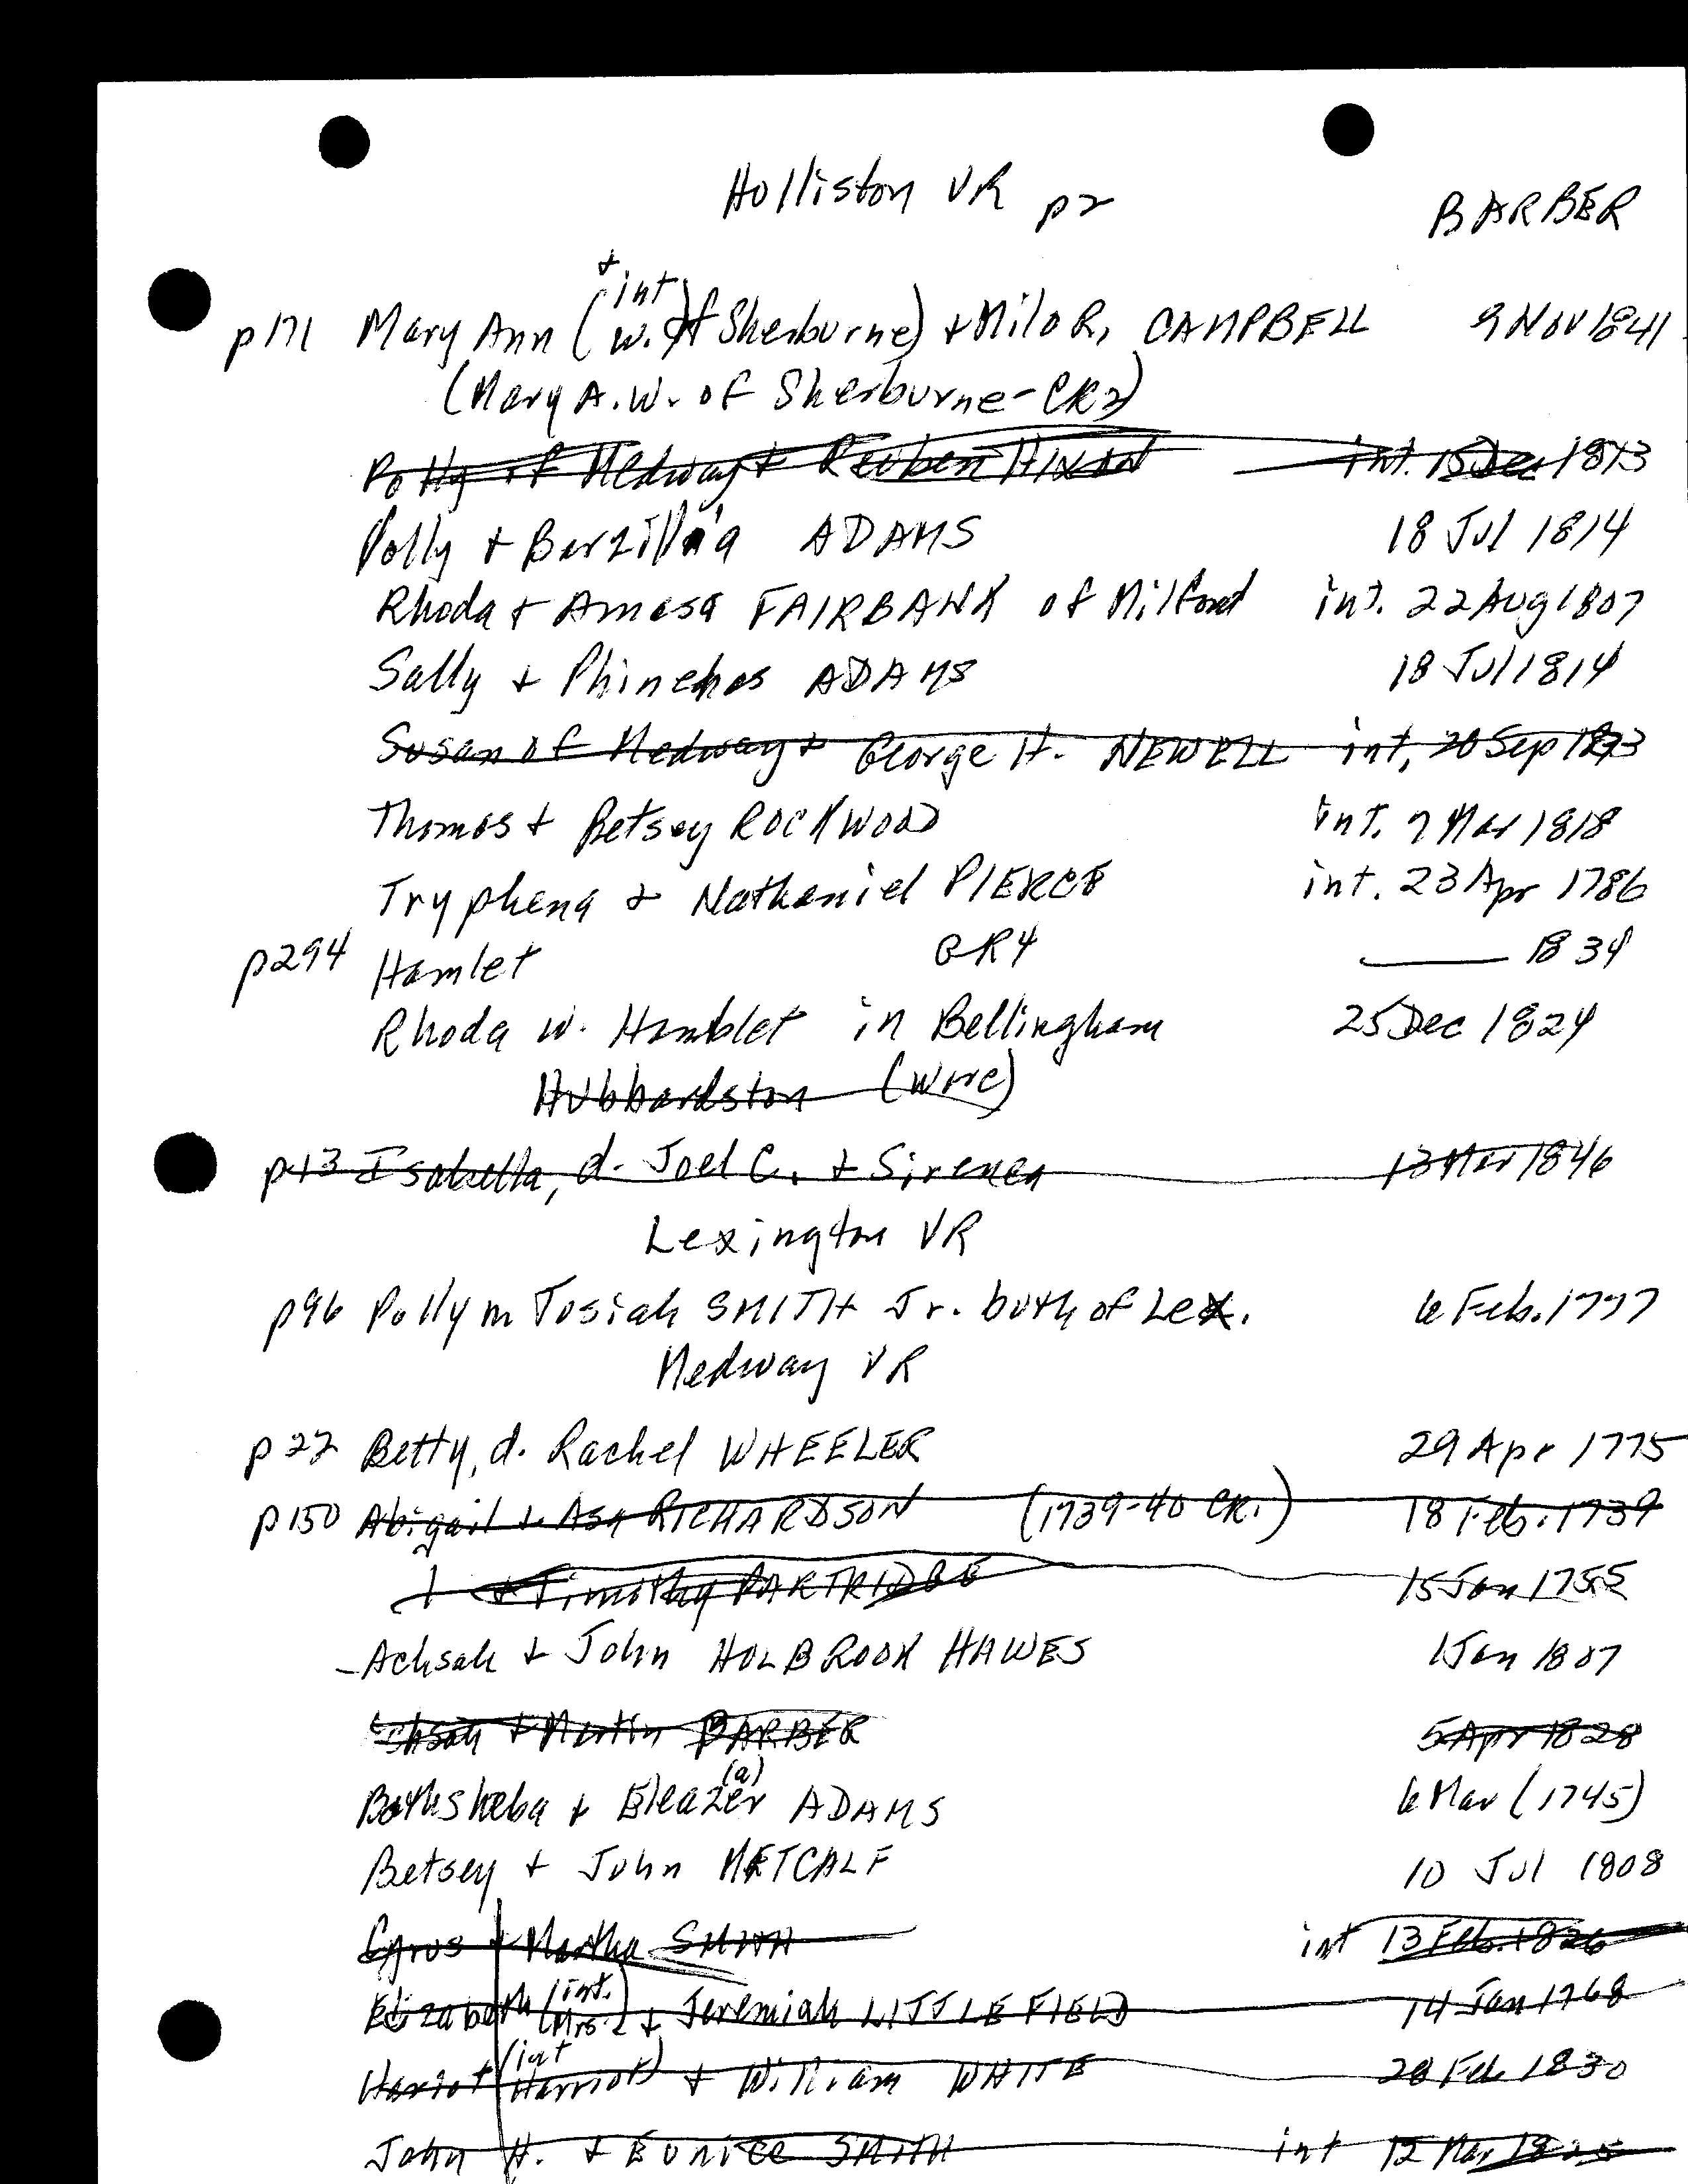 Holliston VR p2 BARBER
+ int
p171 Mary Ann (w. of Sherburne) + Milo R. CAMPBELL 9 Nov 1841
(Mary A. W. of Sherburne - CR2)
Polly of Medway + Reuben HIXON int. 15 Dec 1813
Polly + Barzilla ADAMS 18 Jul 1814
Rhoda + Amasa FAIRBANK of Milford int. 22 Aug 1807
Sally + Phinehas ADAMS 18 Jul 1814
Susan of Medway + George H. NEWELL int. 20 Sep
Thomas + Betsey ROCKWOOD int. 7 Mar 1818
Tryphena + Nathaniel PIERCE int. 23 Apr 1786
p294 Hamlet GR4 —— 1834
Rhoda w. Hamblet in Bellingham 25 Dec 1824
Hubbardston (Worc)
p13 Isabella, d. Joel C. + Sirenea 13 Mar 1846
Lexington VR
p96 Polly m Josiah SMITH Jr. both of Lex. 6 Feb. 1797
Medway VR
p22 Betty, d. Rachel WHEELER 29 Apr 1775
p150 Abigail + Asa RICHARDSON (1739-40 CR.) 18 Feb. 1739
+ Timothy PARTRIDGE 15 Jan 1755
- Achsah + John HOLBROOK HAWES 1 Jan 1807
Achsah + Martin BARBER 5 Apr 1828
(a)
Bathsheba + Eleazer ADAMS 6 Mar (1745)
Betsey + John METCALF 10 Jul 1808
Cyrus + Martha SMITH int 13 Feb. 1826
Elizabeth (int. Mrs.) + Jeremiah LITTLEFIELD 14 Jan 1768
Hariot (int Harriot) + William WHITE 28 Feb 1830
John H. + Eunice SMITH int 12 Mar 1825